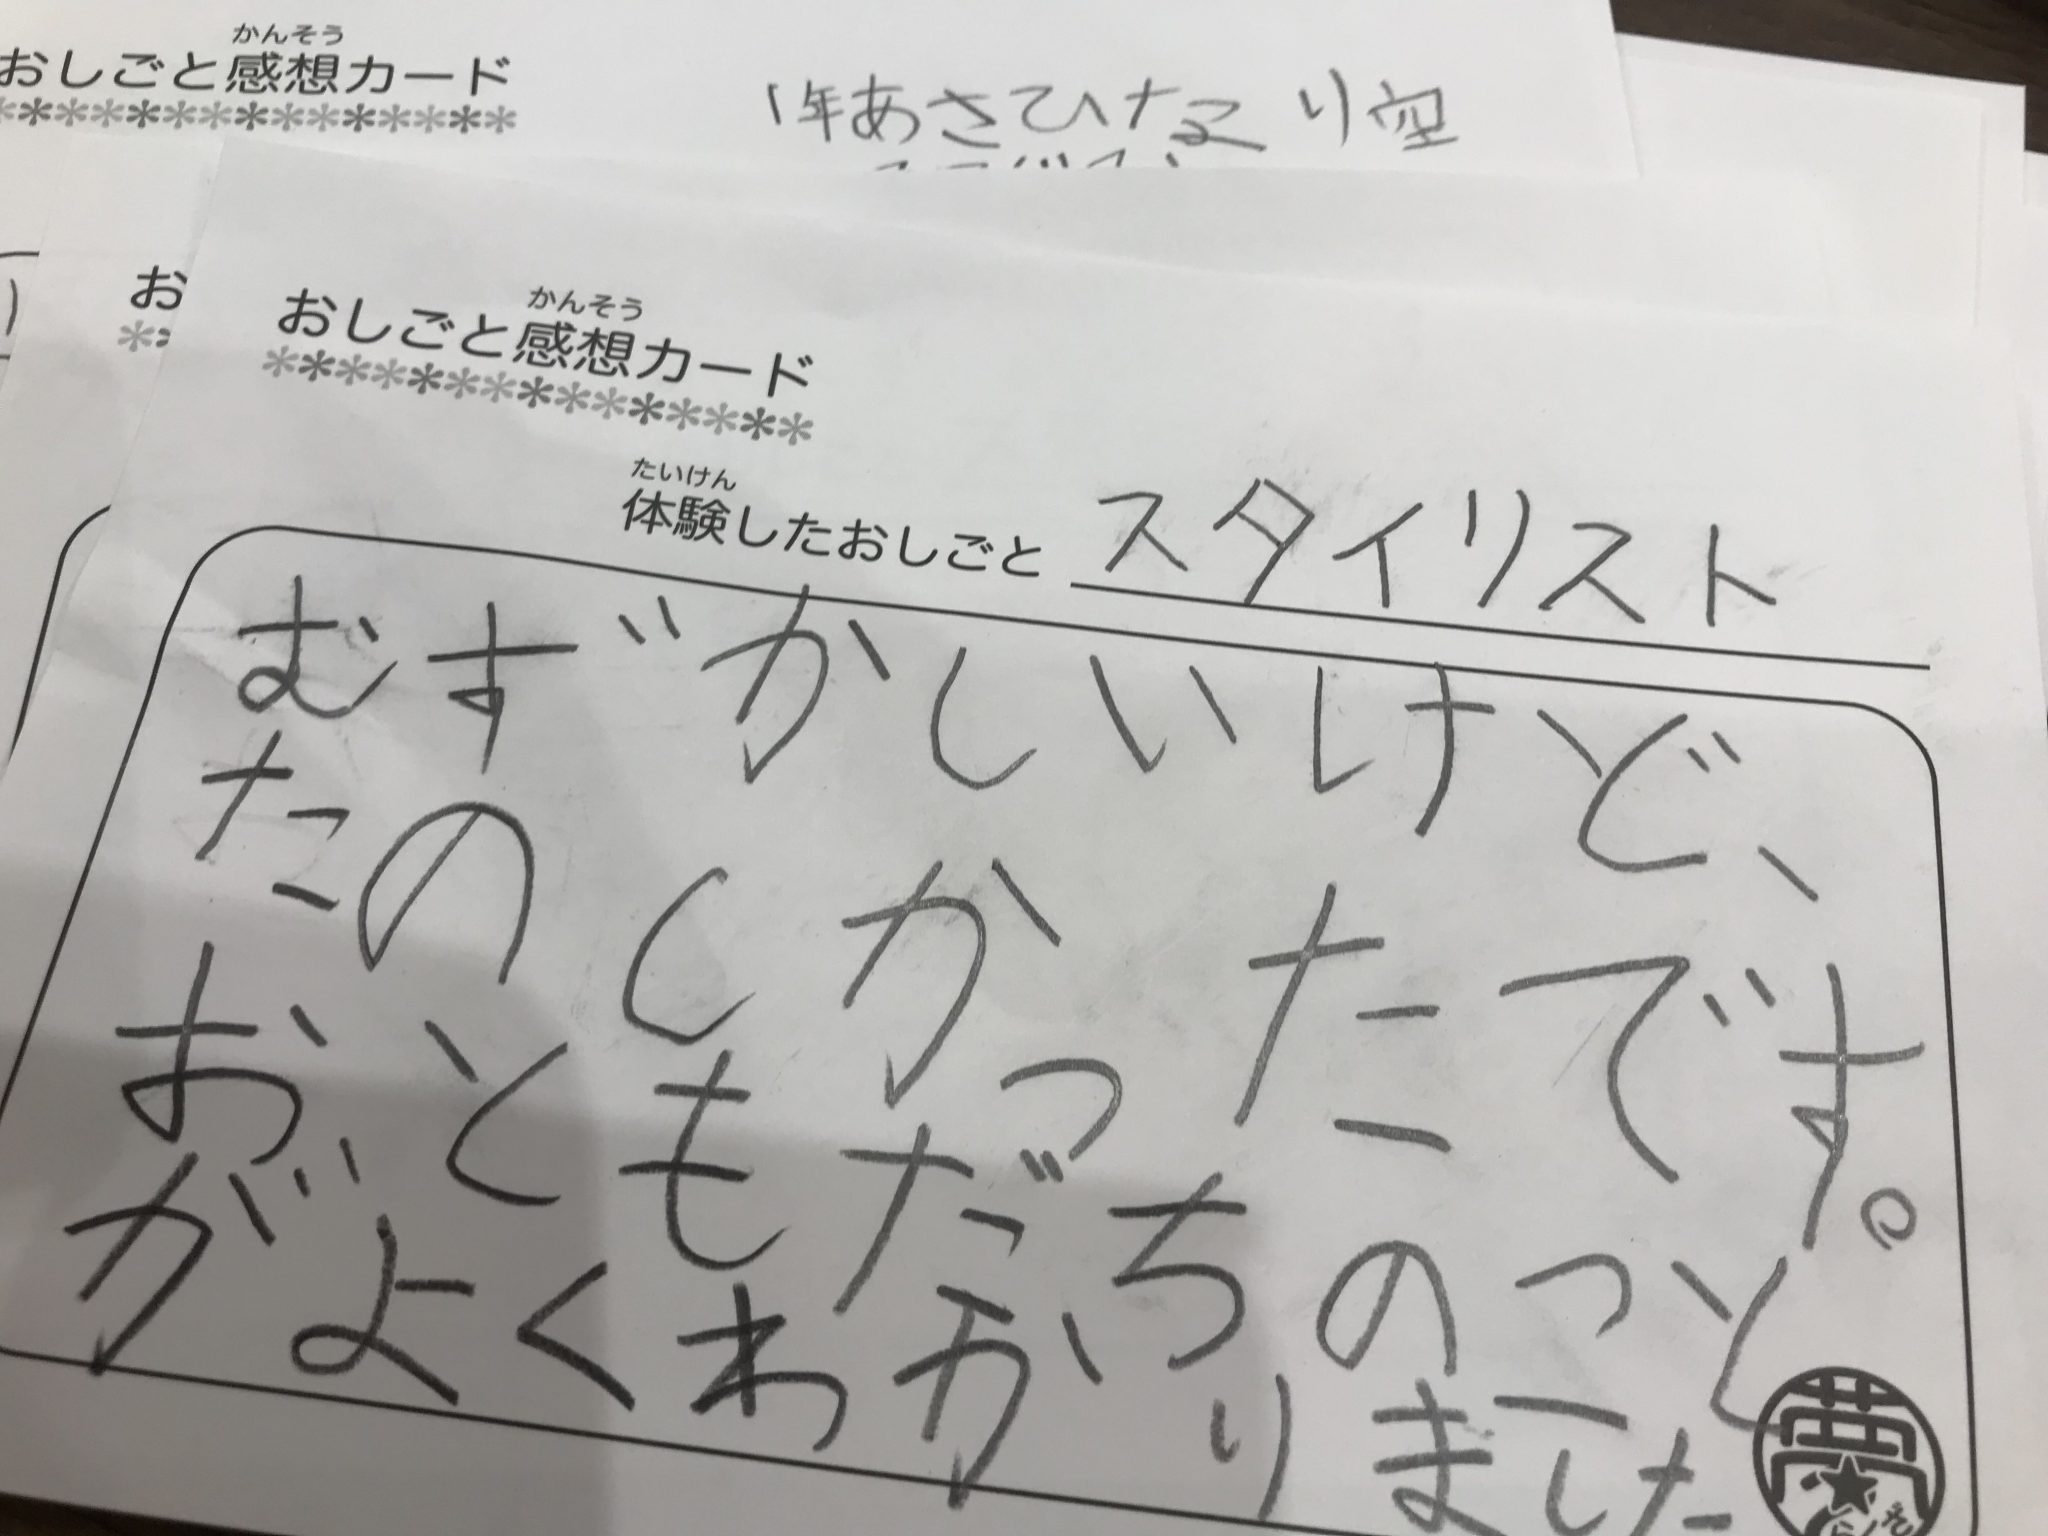 かんそう
おしごと感想カード
******
1年あさひなこ り空
お
かんそう
おしごと感想カード
***************
たいけん
体験したおしごと スタイリスト
むずかしいけど、
たのしかったです。
おともだちのこと
がよくわかりました
夢